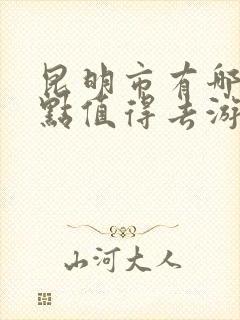 昆明市有哪
點值得去游
山河大人